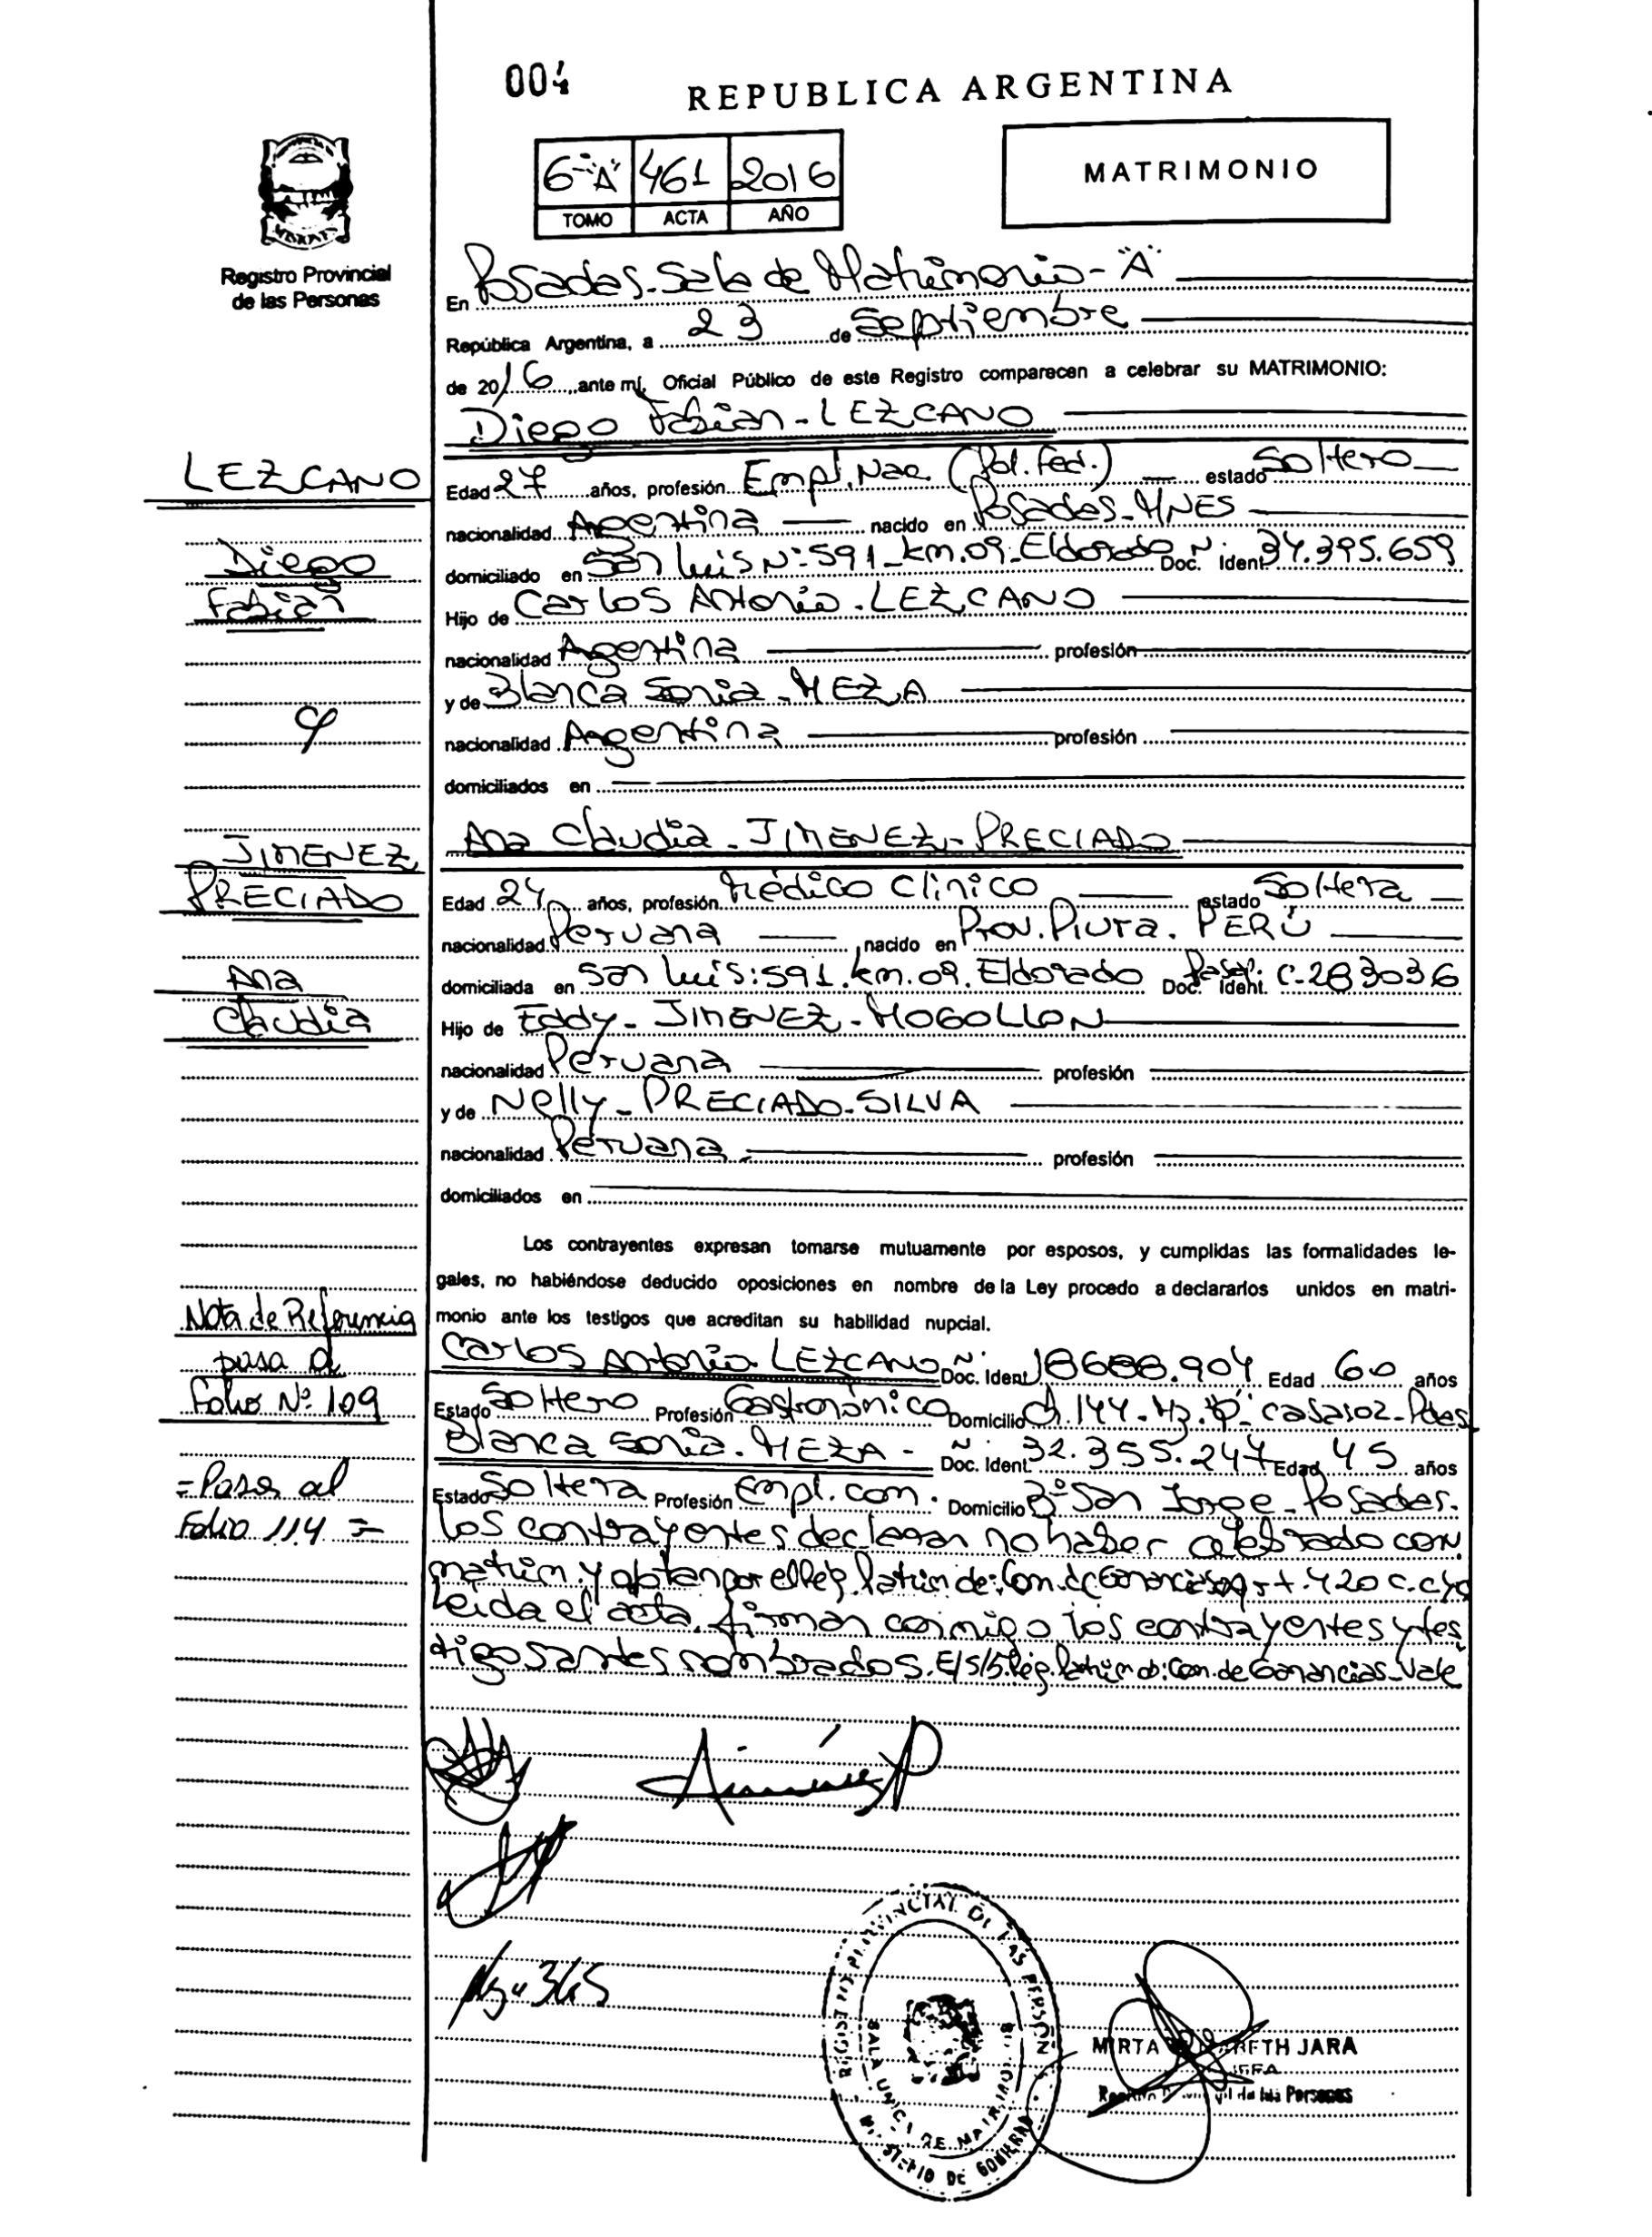 004
REPUBLICA ARGENTINA
6-"A" 461 2016
TOMO ACTA AÑO
MATRIMONIO
Registro Provincial
de las Personas
En Posadas. Sala de Matrimonio - "A"
República Argentina, a 23 de Septiembre
de 2016, ante mí, Oficial Público de este Registro comparecen a celebrar su MATRIMONIO:
Diego Fabián - LEZCANO
LEZCANO
Diego
Fabián
Edad 27 años, profesión Empl. Nac (Pol. Fed.) estado Soltero
nacionalidad Argentina nacido en Posadas - MNES
domiciliado en San Luis N: 591 - km. 09 - Eldorado Doc. Ident. 34.395.659
Hijo de Carlos Antonio - LEZCANO
nacionalidad Argentina profesión
y de Blanca Sonia - MEZA
nacionalidad Argentina profesión
domiciliados en
JIMENEZ
PRECIADO
Ana
Claudia
Ana Claudia - JIMENEZ - PRECIADO
Edad 24 años, profesión Médico Clínico estado Soltera
nacionalidad Peruana nacido en Prov. Piura. PERÚ
domiciliada en San Luis: 591. km. 09. Eldorado Doc. Ident. Pasap: C-283036
Hijo de Eddy - JIMENEZ - MOGOLLON
nacionalidad Peruana profesión
y de Nelly - PRECIADO - SILVA
nacionalidad Peruana profesión
domiciliados en
Los contrayentes expresan tomarse mutuamente por esposos, y cumplidas las formalidades le-
gales, no habiéndose deducido oposiciones en nombre de la Ley procedo a declararlos unidos en matri-
monio ante los testigos que acreditan su habilidad nupcial.
Nota de Referencia
pasa al
Folio Nº 109
= Pasa al
Folio 114 =
Carlos Antonio. LEZCANO Doc. Ident. 18688.904 Edad 60 años
Estado Soltero Profesión Gastronómico Domicilio Ch. 144 - Mz. casa 102 - Pdas
Blanca Sonia - MEZA - Doc. Ident. 32.355.247 Edad 45 años
Estado Soltera Profesión Empl. com. Domicilio Bº San Jorge - Posadas.
Los contrayentes declaran no haber celebrado con.
matrim. y optan por el Rég. Patrim de: Com. de Ganancias art. 420 C. c y c
Leída el acta, firman conmigo los contrayentes y tes
tigos antes nombrados. E/S/5. Rég. Patrim de: Com. de Ganancias - Vale
REGISTRO PROVINCIAL DE LAS PERSONAS
SALA UNICA DE MATRIMONIOS
MINISTERIO DE GOBIERNO
MIRTA JARA
JEFA
de las Personas